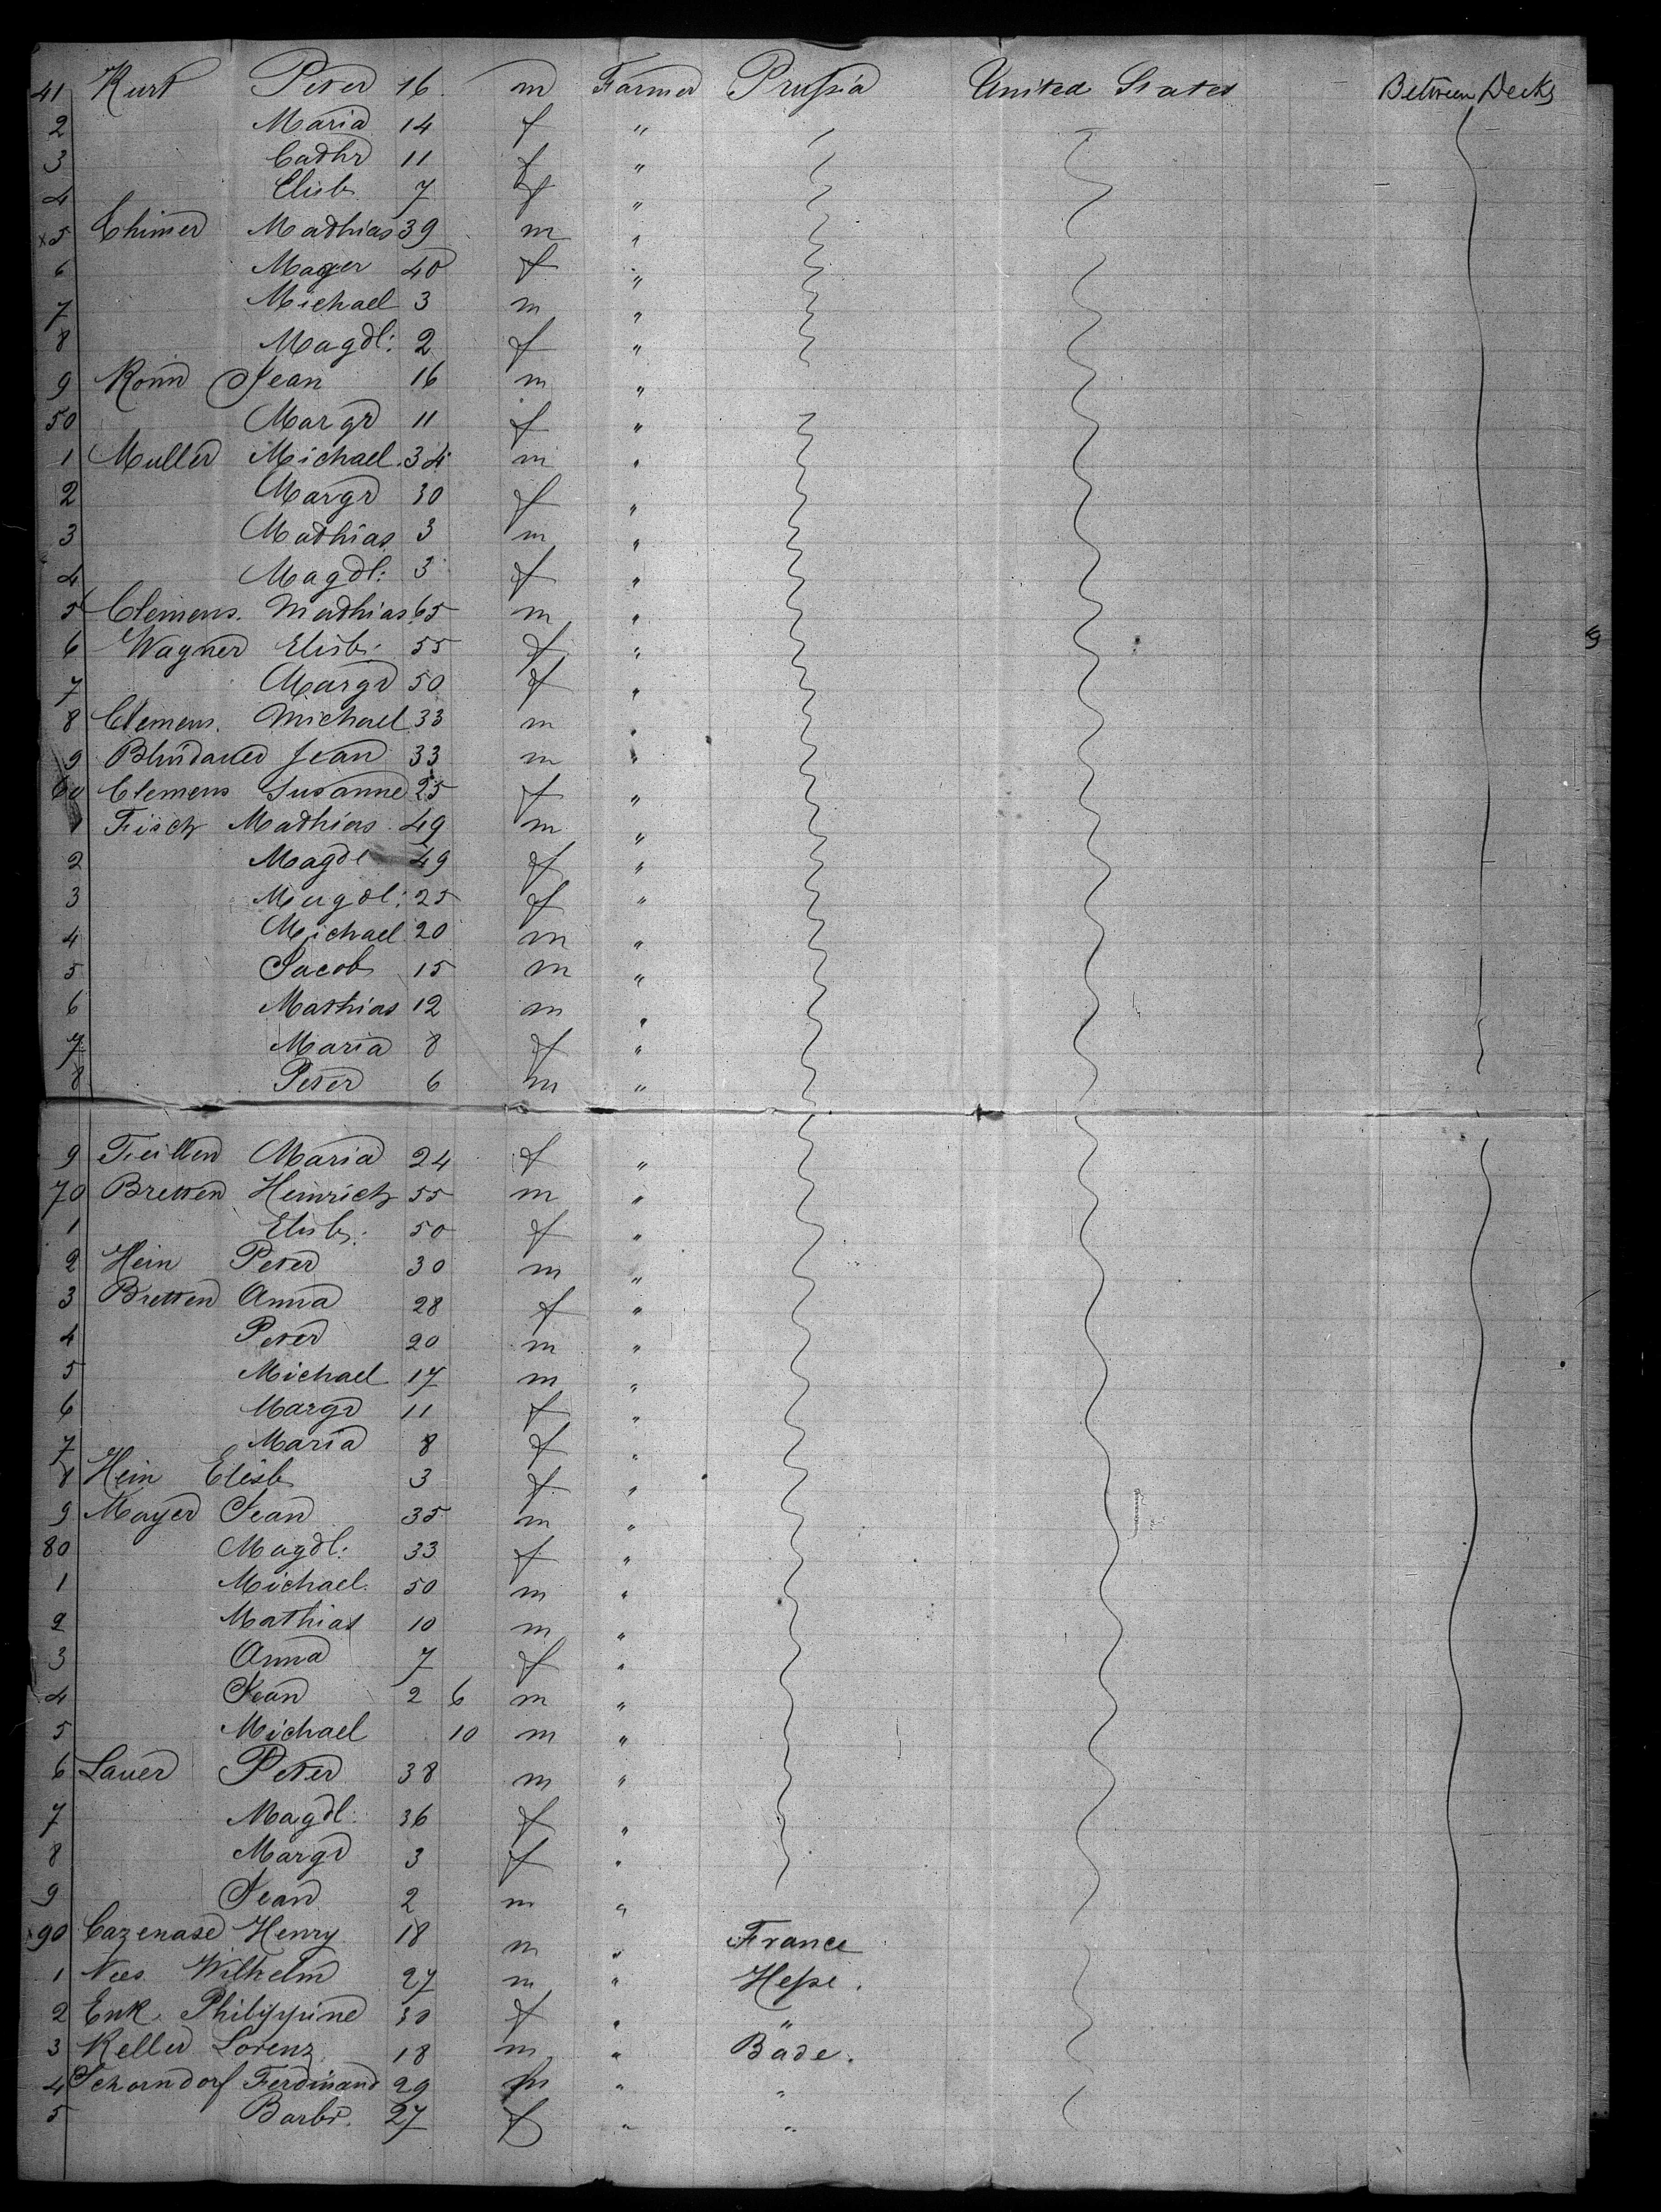 41 Kurt Peter 16 m Farmer Prussia United States Between Decks
2 Maria 14 f "
3 Cathr 11 f "
4 Elisb. 7 f "
x5 Chimer Mathias 39 m "
6 Mager 40 f "
7 Michael 3 m "
8 Magdl: 2 f "
9 Konn Jean 16 m "
50 Margr 11 f "
1 Muller Michael 34 m "
2 Margr 30 f "
3 Mathias 3 m "
4 Magdl: 3 f "
5 Clemens. Mathias 65 m "
6 Wagner Elisb: 55 f "
7 Margr 50 f "
8 Clemens. Michael 33 m "
9 Jean 33 m "
60 Clemens Susanne 25 f "
1 Fisch Mathias 49 m "
2 Magdl 49 f "
3 Magdl: 25 f "
4 Michael 20 m "
5 Jacob 15 m "
6 Mathias 12 m "
7 Maria 8 f "
8 Peter 6 m "
9 Maria 24 f "
70 Bretten Heinrich 55 m "
1 Elisb: 50 f "
2 Hein Peter 30 m "
3 Bretten Anna 28 f "
4 Peter 20 m "
5 Michael 17 m "
6 Margr 11 f "
7 Maria 8 f "
8 Hein Elisb 3 f "
9 Mayer Jean 35 m "
80 Magdl: 33 f "
1 Michael. 50 m "
2 Mathias 10 m "
3 Anna 7 f "
4 Jean 2 6 m "
5 Michael 10 m "
6 Lauer Peter 38 m "
7 Magdl: 36 f "
8 Margr 3 f "
9 Jean 2 m "
90 Cazenase Henry 18 m " France
1 Nees Wilhelm 27 m " Hesse.
2 Enk. Philippine 30 f " "
3 Keller Lorenz 18 m " Bade.
4 Schorndorf Ferdinand 29 m " "
5 Barbr. 27 f " "